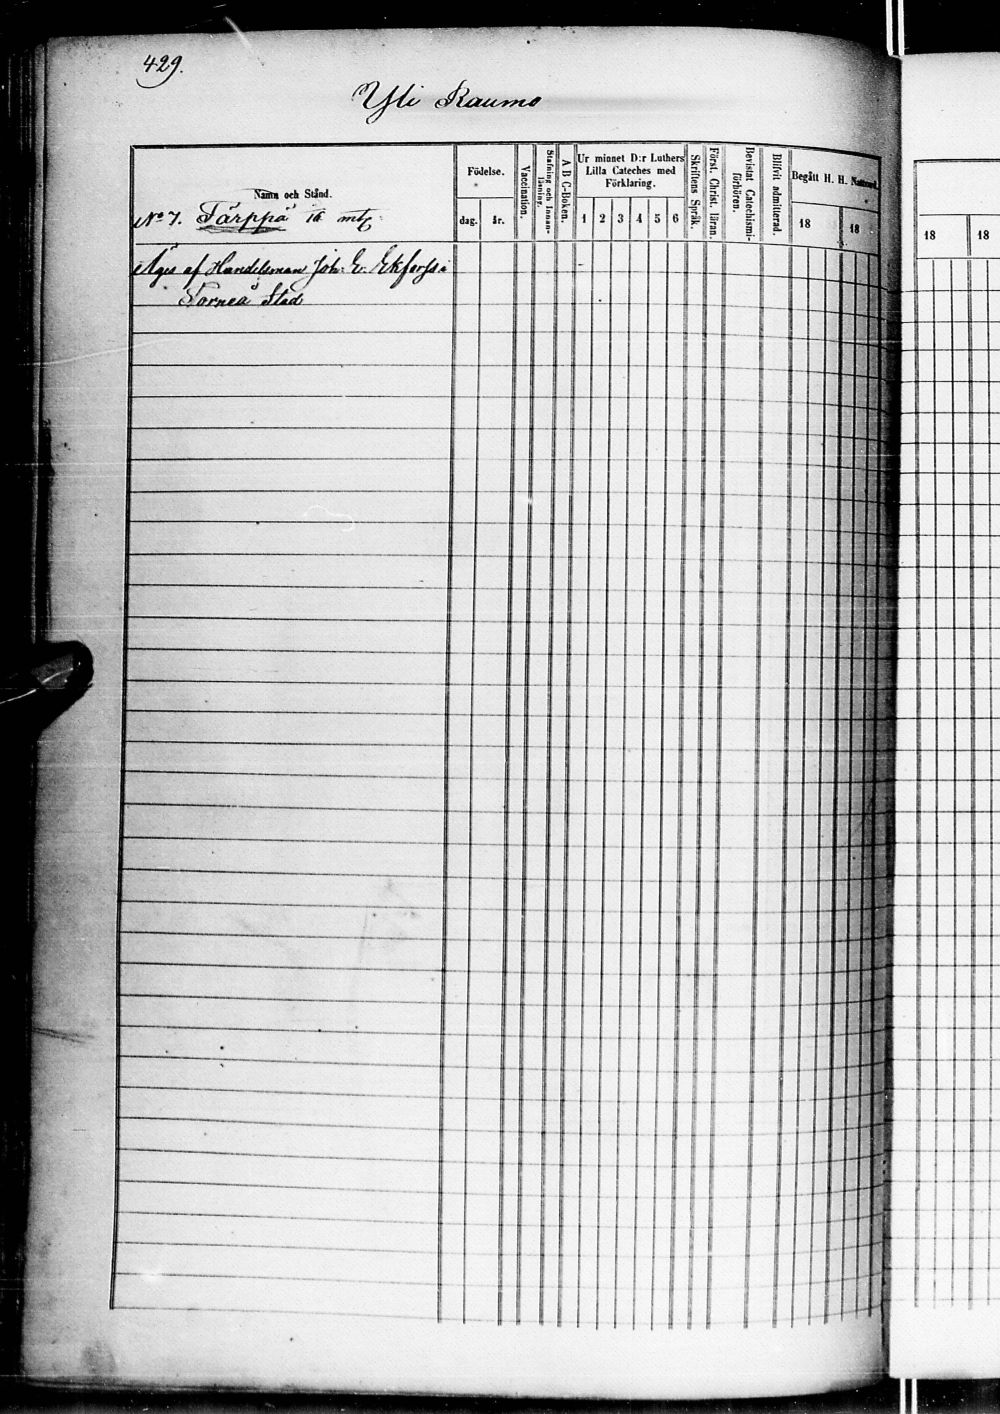 429.
Yli Raumo
Namn och Stånd.
Födelse.
dag.
år.
Vaccination.
Stafning och Innanläsning.
A B C-Boken.
Ur minnet D:r Luthers
Lilla Cateches med
Förklaring.
1 2 3 4 5 6
Skriftens Språk.
Först. Christ. läran.
Bevistat Catechismi-
förhören.
Blifvit admitterad.
Begått H. H. Nattvard.
18
18
18
18
No 7. Tärppä mtl
Äges af Handelsman Joh. E. Ekforss i
Torneå Stad